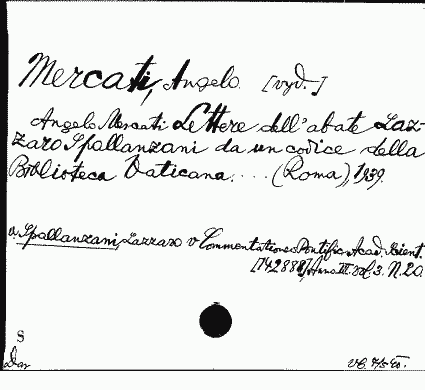 Mercati, Angelo. [vyd.]
Angelo Mercati Lettere dell'abate Laz-
zaro Spallanzani da un codice della
Biblioteca Vaticana. . . . (Roma), 1939.
a. Spallanzani, Lazzaro v Commentationes Pontific. Acad. Scient.
[742888], Anno III. vol 3. N. 20.
S
Dar